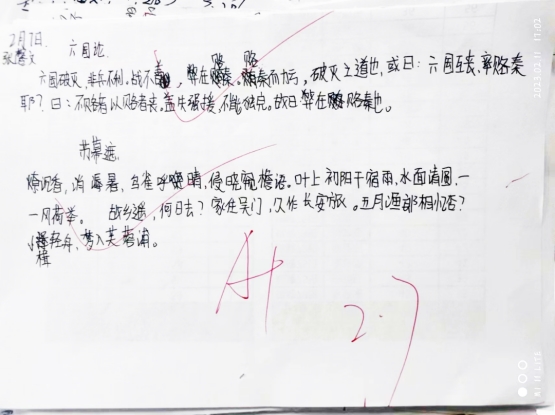 2月7日
六国论
六国破灭,非兵不利,战不善,弊在赂秦。赂秦而力亏,破灭之道也,或曰:六国互丧,率赂秦
耶?曰:不赂者以赂者丧。盖失强援,不能独完。故曰弊在赂秦也。
苏幕遮
燎沉香,消溽暑,鸟雀呼晴,侵晓窥檐语。叶上初阳干宿雨,水面清圆,一
一风荷举。 故乡遥,何日去?家住吴门,久作长安旅。五月渔郎相忆否?
小楫轻舟,梦入芙蓉浦。
楫
A+
2.7
2023.02.11 11:02